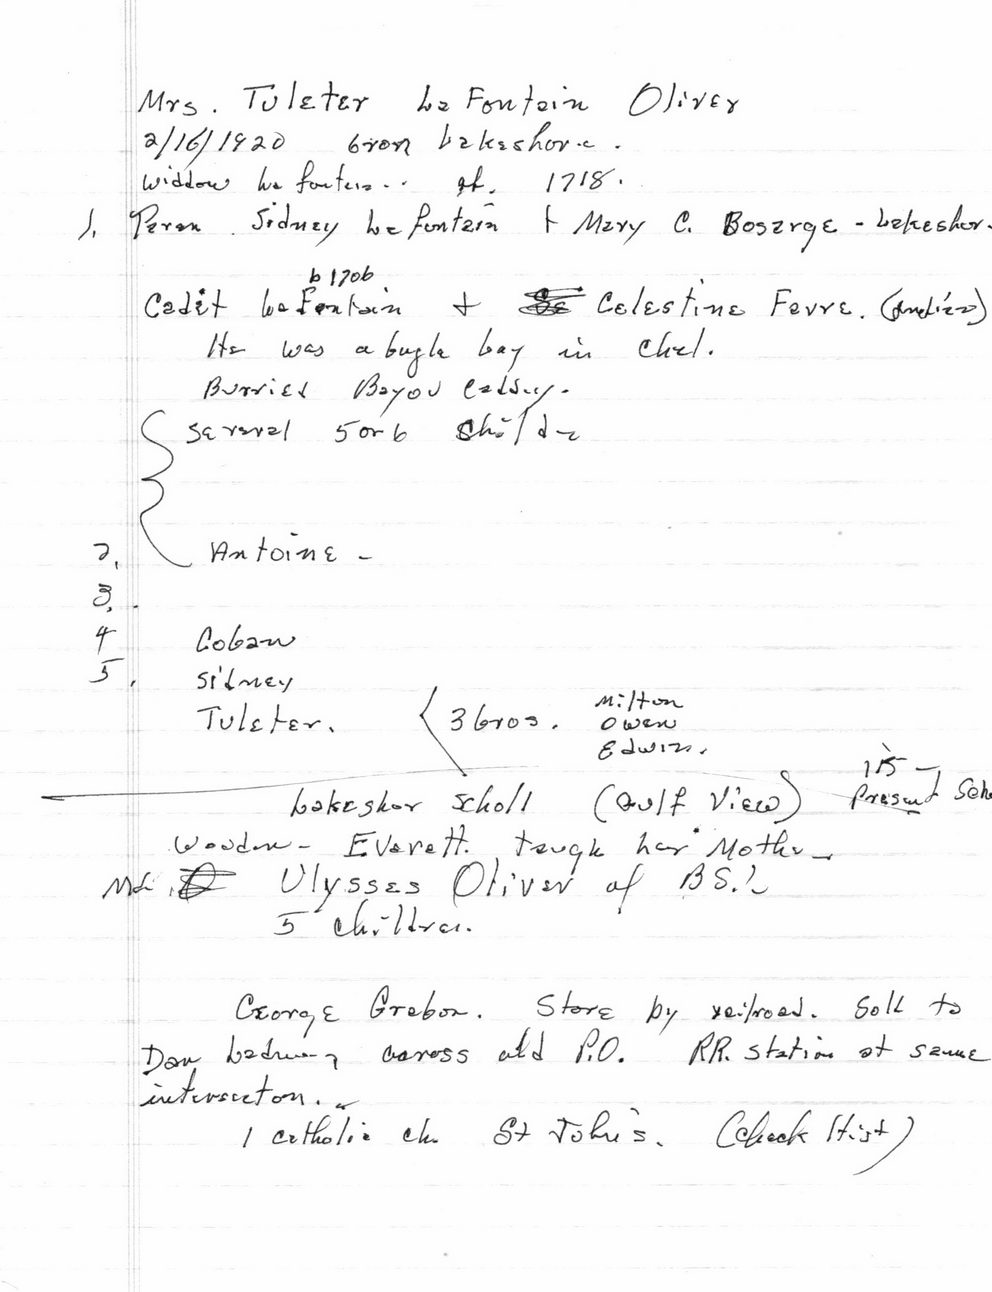 Mrs. Tuleter La Fontain Oliver
2/16/1920 born Lakeshore.
Widdow La fontain.. gt. 1718.
1. Paren Sidney La fontain + Mary C. Bosarge - Lakeshor.
b 1706
Cadit La Fontain + Celestine Favre. (Indian)
He was a bugle boy in Chal.
Burried Bayou Caddy.
Several 5 or 6 Child
2. Antoine -
3.
4 Coban
5. Sidney
Tuleter. 3 bros. Milton
Owen
Edwin.
115 -
Lakeshor Scholl (Gulf View) Present Sch
Wooden - Everett. taugh her Mother
Md. Ulysses Oliver of B.S.L
5 children.
George Grabon. Store by railroad. Sold to
Dan across old P.O. RR. station at same
intersecton.
1 catholic ch. St John's. (check Hist)